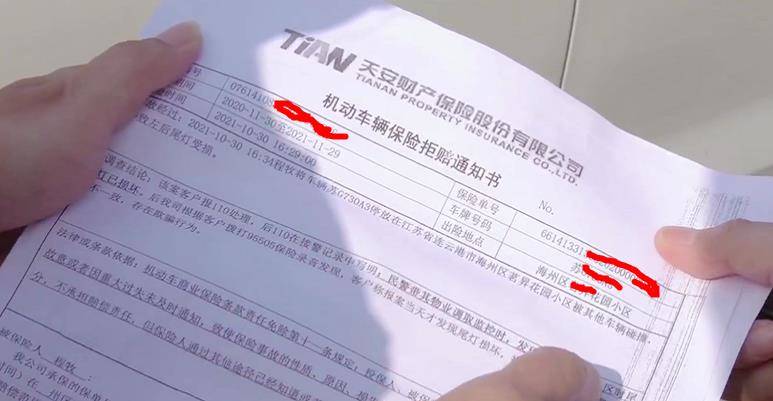 TIAN 天安财产保险股份有限公司
TIANAN PROPERTY INSURANCE CO.,LTD.
机动车辆保险拒赔通知书
No.
号 07614108 保险单号 66141331 2020000
期间 2020-11-30至2021-11-29 车牌号码 苏
时间 2021-10-30 16:29:00 出险地点 海州区 花园小区
故经过：2021-10-30 16:34程牧将车辆苏G730A3停放在江苏省连云港市海州区茗昇花园小区被其他车辆碰撞，
致左后尾灯受损。
调查结论：该案客户报110处理，后110在接警记录中写明：民警带其物业调取监控时，发
灯已损坏，后我司根据客户拨打95505保险录音发现，客户称报案当天才发现尾灯损坏，
不一致，存在欺骗行为。
法律或条款依据：机动车商业保险条款责任免除第十一条规定：投保人、被保
故意或者因重大过失未及时通知，致使保险事故的性质、原因、损
分，不承担赔偿责任，但保险人通过其他途径已经知道或
被保险人：程牧：
我公司承保的保单
时间）在